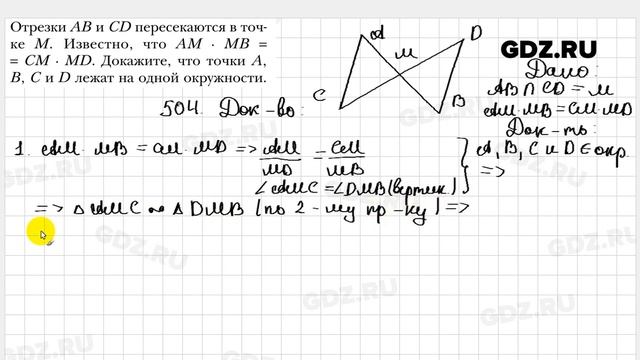 Отрезки AB и CD пересекаются в точ-
ке M. Известно, что AM · MB =
= CM · MD. Докажите, что точки A,
B, C и D лежат на одной окружности.
A
M
D
C
B
GDZ.RU
Дано:
AB ∩ CD = M
AM · MB = CM · MD
Док-ть:
A, B, C и D ∈ окр.
504. Док-во:
1. AM · MB = CM · MD => AM/MD = CM/MB
∠AMC = ∠DMB (вертик) } =>
=> △AMC ~ △DMB (по 2-му пр-ку) =>